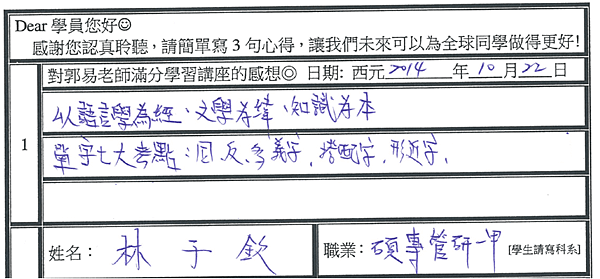 Dear 學員您好☺
感謝您認真聆聽，請簡單寫 3 句心得，讓我們未來可以為全球同學做得更好!
對郭易老師滿分學習講座的感想◎ 日期: 西元 2014 年 10 月 22 日
以語言學為經、文學為緯、知識為本
1
單字七大考點：同、反、多義字、搭配字、形近字、
姓名： 林子欽 職業： 碩專管研一甲 [學生請寫科系]